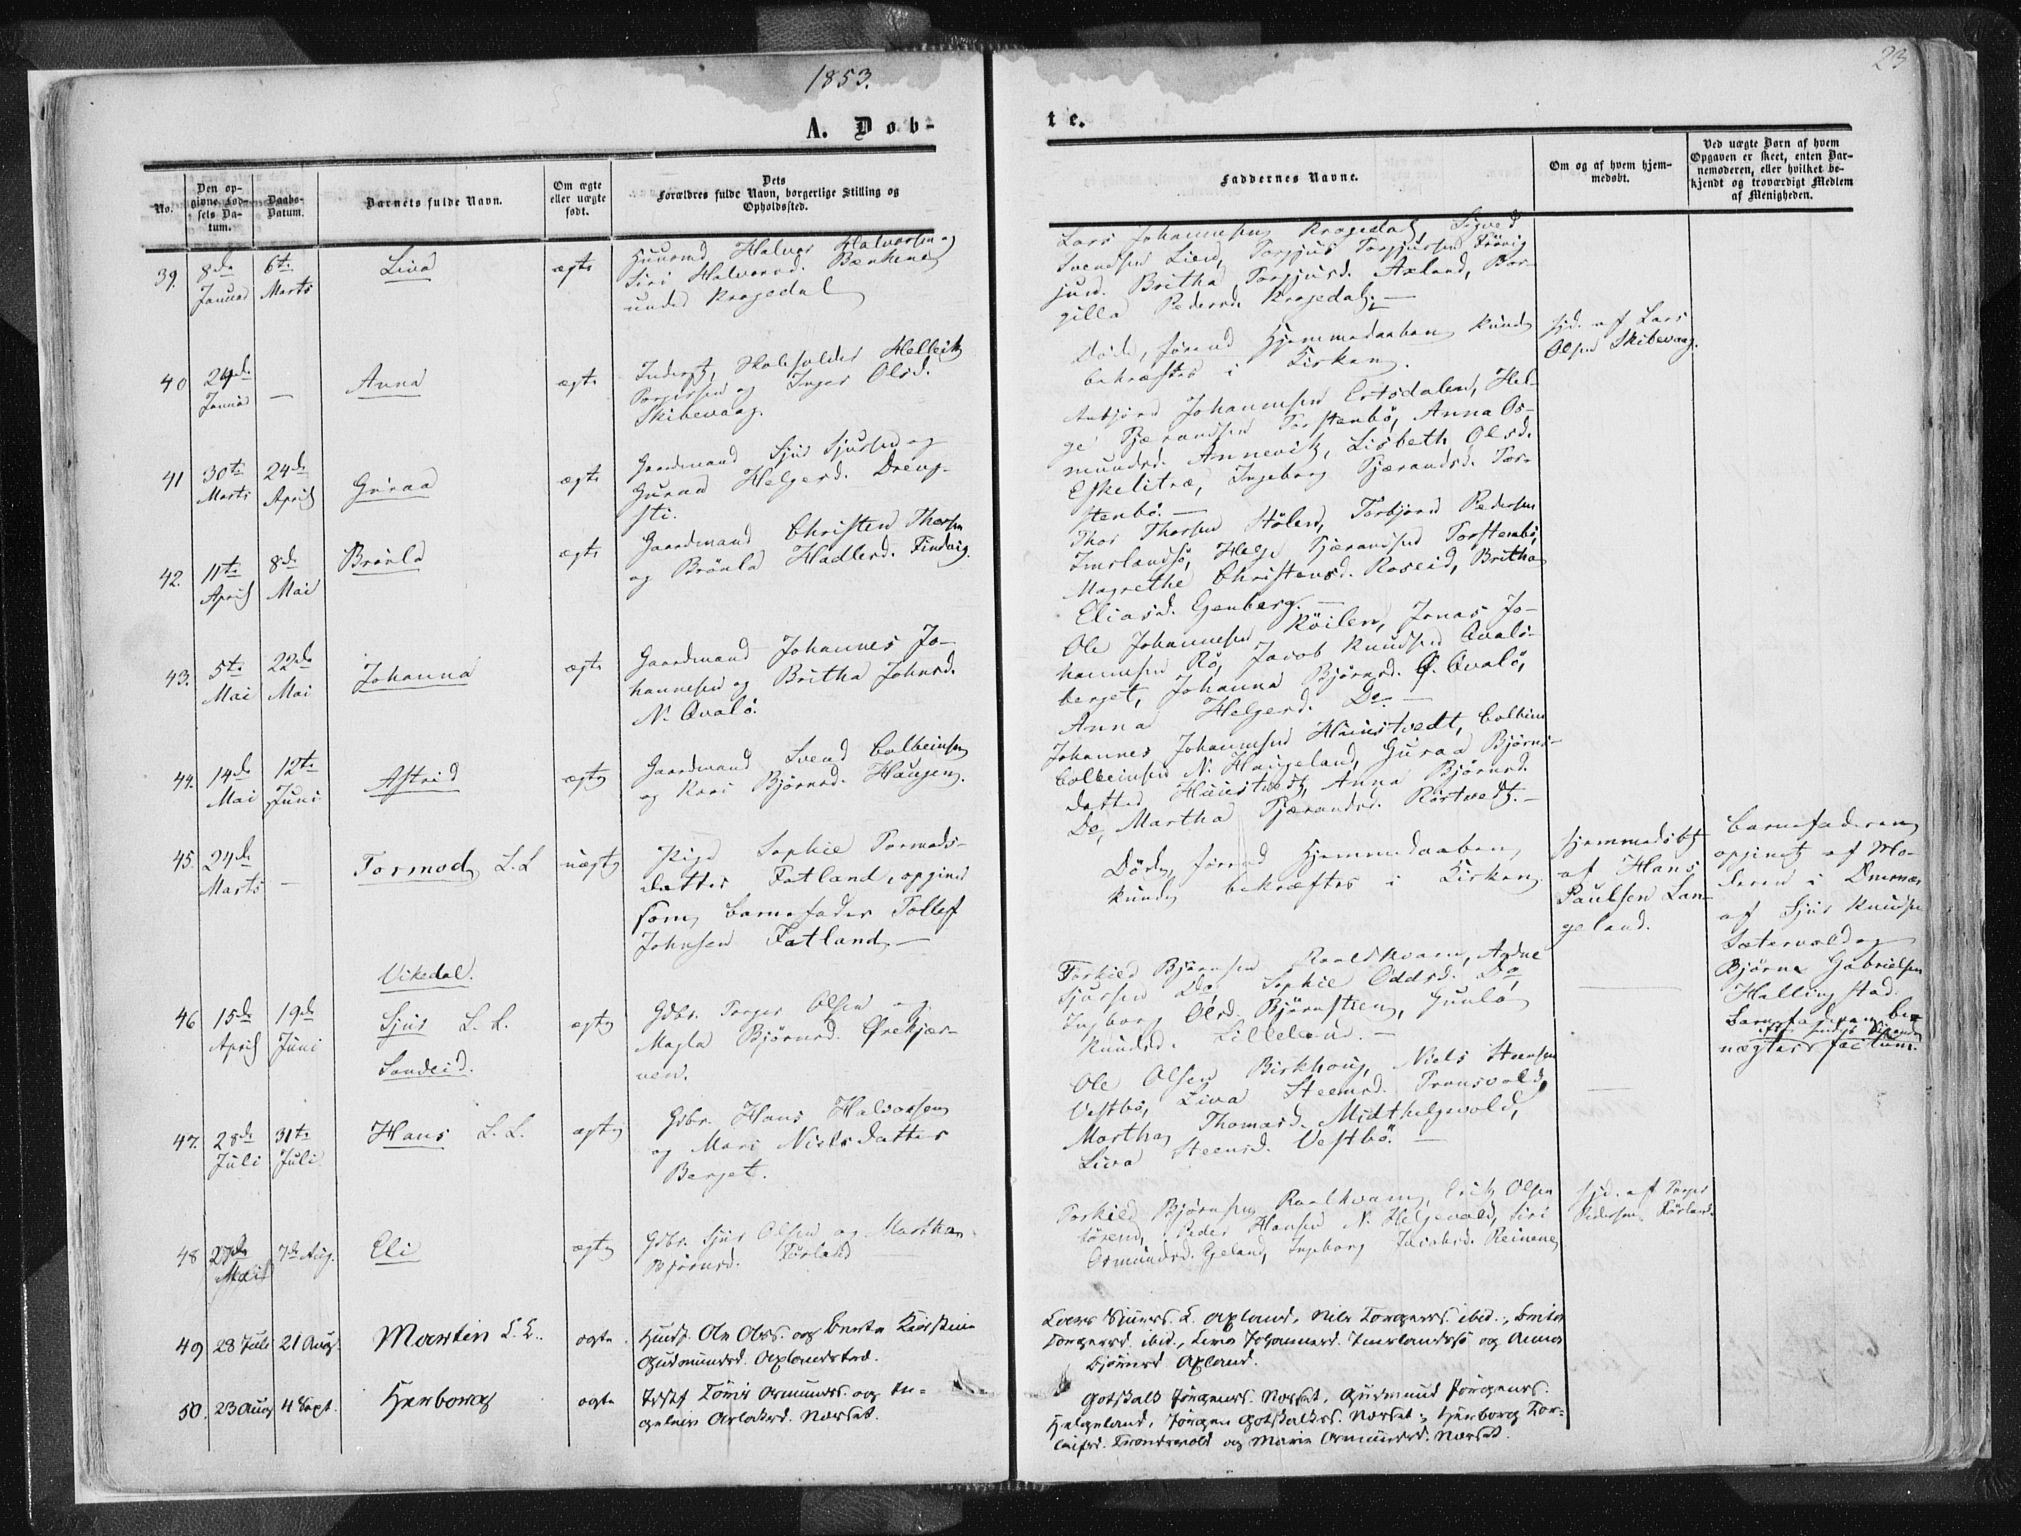 1853.
23
A. Døb-
te.
No.
Den op-
givne Fød-
sels Da-
tum.
Daabs-
Datum.
Barnets fulde Navn.
Om ægte
eller uægte
født.
Dets
Forældres fulde Navn, borgerlige Stilling og
Opholdssted.
Faddernes Navne.
Om og af hvem hjem-
medøbt.
Ved uægte Børn af hvem
Opgaven er skeet, enten Bar-
nemoderen, eller hvilket be-
kjendt og troværdigt Medlem
af Menigheden.
39. 8de Januar
6te Marts
Liva
ægte
Huusmd Halvor Halvorsen og
Siri Halvorsd. Bærkene
under Krogedal
Lars Johannesen Krogedal, Sigved
Svendsen Lien, Torgjus Torgjussen
Britha Torgjusd. Axland, Bor-
gilla Pedersd. Krogedal. —
40 24de Januar
—
Anna
ægte
Inderst, Skoleholder Helleik
Torgersen og Inger Olsd.
Skibevaag.
Døde, førend Hjemmedaaben kunde
bekræftes i Kirken.
hjd. af Lars
Olsen Skibevaag.
41 30te Marts
24de April
Guraa
ægte
Gaardmand Sjur Sjursen og
Guraa Helgesd. Dreng-
sti.
Johannesen Ertsdalen, Hel-
ge Tjerandsen Torstenbø, Anna Os-
mundsd. Annevik, Lisbeth Olsd.
Eskelitræ, Ingeborg Tjærandsd. Tor-
stenbø. —
42. 11te April
8de Mai
Brønla
ægte
Gaardmand Christen Thorsen
og Brønla Hadlersd. Findvig
Thor Thorsen Stølen, Torbjørn Pedersen
Imslandsø, Helge Tjærandsen Torstenbø,
Magrethe Christensd. Roseid, Britha
Eliasd. Genberg. —
43. 5te Mai
22de Mai
Johanna
ægte
Gaardmand Johannes Jo-
hannesen og Britha Johnsd.
N. Qvalø.
Ole Johannesen Røilen, Jonas Jo-
hannesen Rø, Jacob Knudsen Qvalø-
berget, Johanna Bjørnsd. Ø. Qvalø,
Anna Helgesd. Do. —
44. 14de Mai
12te Juni
Astrid
ægte
Gaardmand Svend Colbeinsen
og Kari Bjørnsd. Haugen.
Johannes Johannesen Hunstvedt, Colbein
Colbeinsen N. Haugeland, Guraa Bjørns-
datter Hunstvedt, Anna Bjørnsd.
Do, Martha Tjærandsd. Rørtvedt. —
45. 24de Marts
—
Tormod L. L
uægte
Pige Sophie Tormods-
datter Fatland, opgiver
som Barnefader Tollef
Johnsen Fatland. —
Døde, førend Hjemmedaaben
kunde bekræftes i Kirken
hjemmedøbt
af Hans
Paulsen Lan-
geland.
Barnefaderen
opgivet af Mo-
deren i Overvær
af Sjur Knudsen
Sætervold og
Bjørne Gabrielsen
Hallingstad.
Barnefaderen be-
nægter factum.
Vikedal.
46 15de April
19de Juni
Sjur L. L.
ægte
Gdbr. Torger Olsen og
Magla Bjørnsd. Ørekjær-
nen.
Torkild Bjørnsen Raaldkvam, Andve
Sjursen Do, Sophie Oddsd. Do,
Ingborg Olsd. Bjørnstien, Gunla
Knudsd. Lilleland. —
—
Sandeid.
47. 28de Juli
31te Juli
Hans L. L.
ægte
Gdbr. Hans Halvorsen
og Mari Nielsdatter
Berget.
Ole Olsen Birkhoug, Niels Steensen
Vestbø, Liva Steensd. Tronsvold,
Martha Thomasd. Midthelgevold,
Liva Steensd. Vestbø. —
—
48 27de Mai
7de Aug.
Eli
ægte
Gdbr. Sjur Olsen og Martha
Bjørnsd. Førland
Torkild Bjørnsen Raalkvam, Erik Olsen
Peder Hansen N. Helgevold, Siri
Osmundsd. Geland, Ingeborg Jacobsd. Reinene
hjd. af Torger
Pedersen Førland.
49 28 Juli
21 Aug.
Martin L. L.
ægte
Huusf. Ole Olss. og Berta Kirstine
Gudmundsd. Axlandstrø.
Lars Sjurss. L. Axland, Nils Torgerss. ibid.,
Torgersd. ibid., Liva Johannesd. Imslandssø og Anna
Bjørnsd. Axland.
50. 23 Aug
4 Sept.
Herborg
ægte
Tønnes Osmunds. og In-
geleiv Aslaksd. Nærset.
Gotskalk Jørgens. Nærset, Gudmund Jørgens.
Helgeland, Jørgen Gotskalks. Nærset, Herborg Tor-
leifsd. Trondsvold og Marie Osmundsd. Nærset.